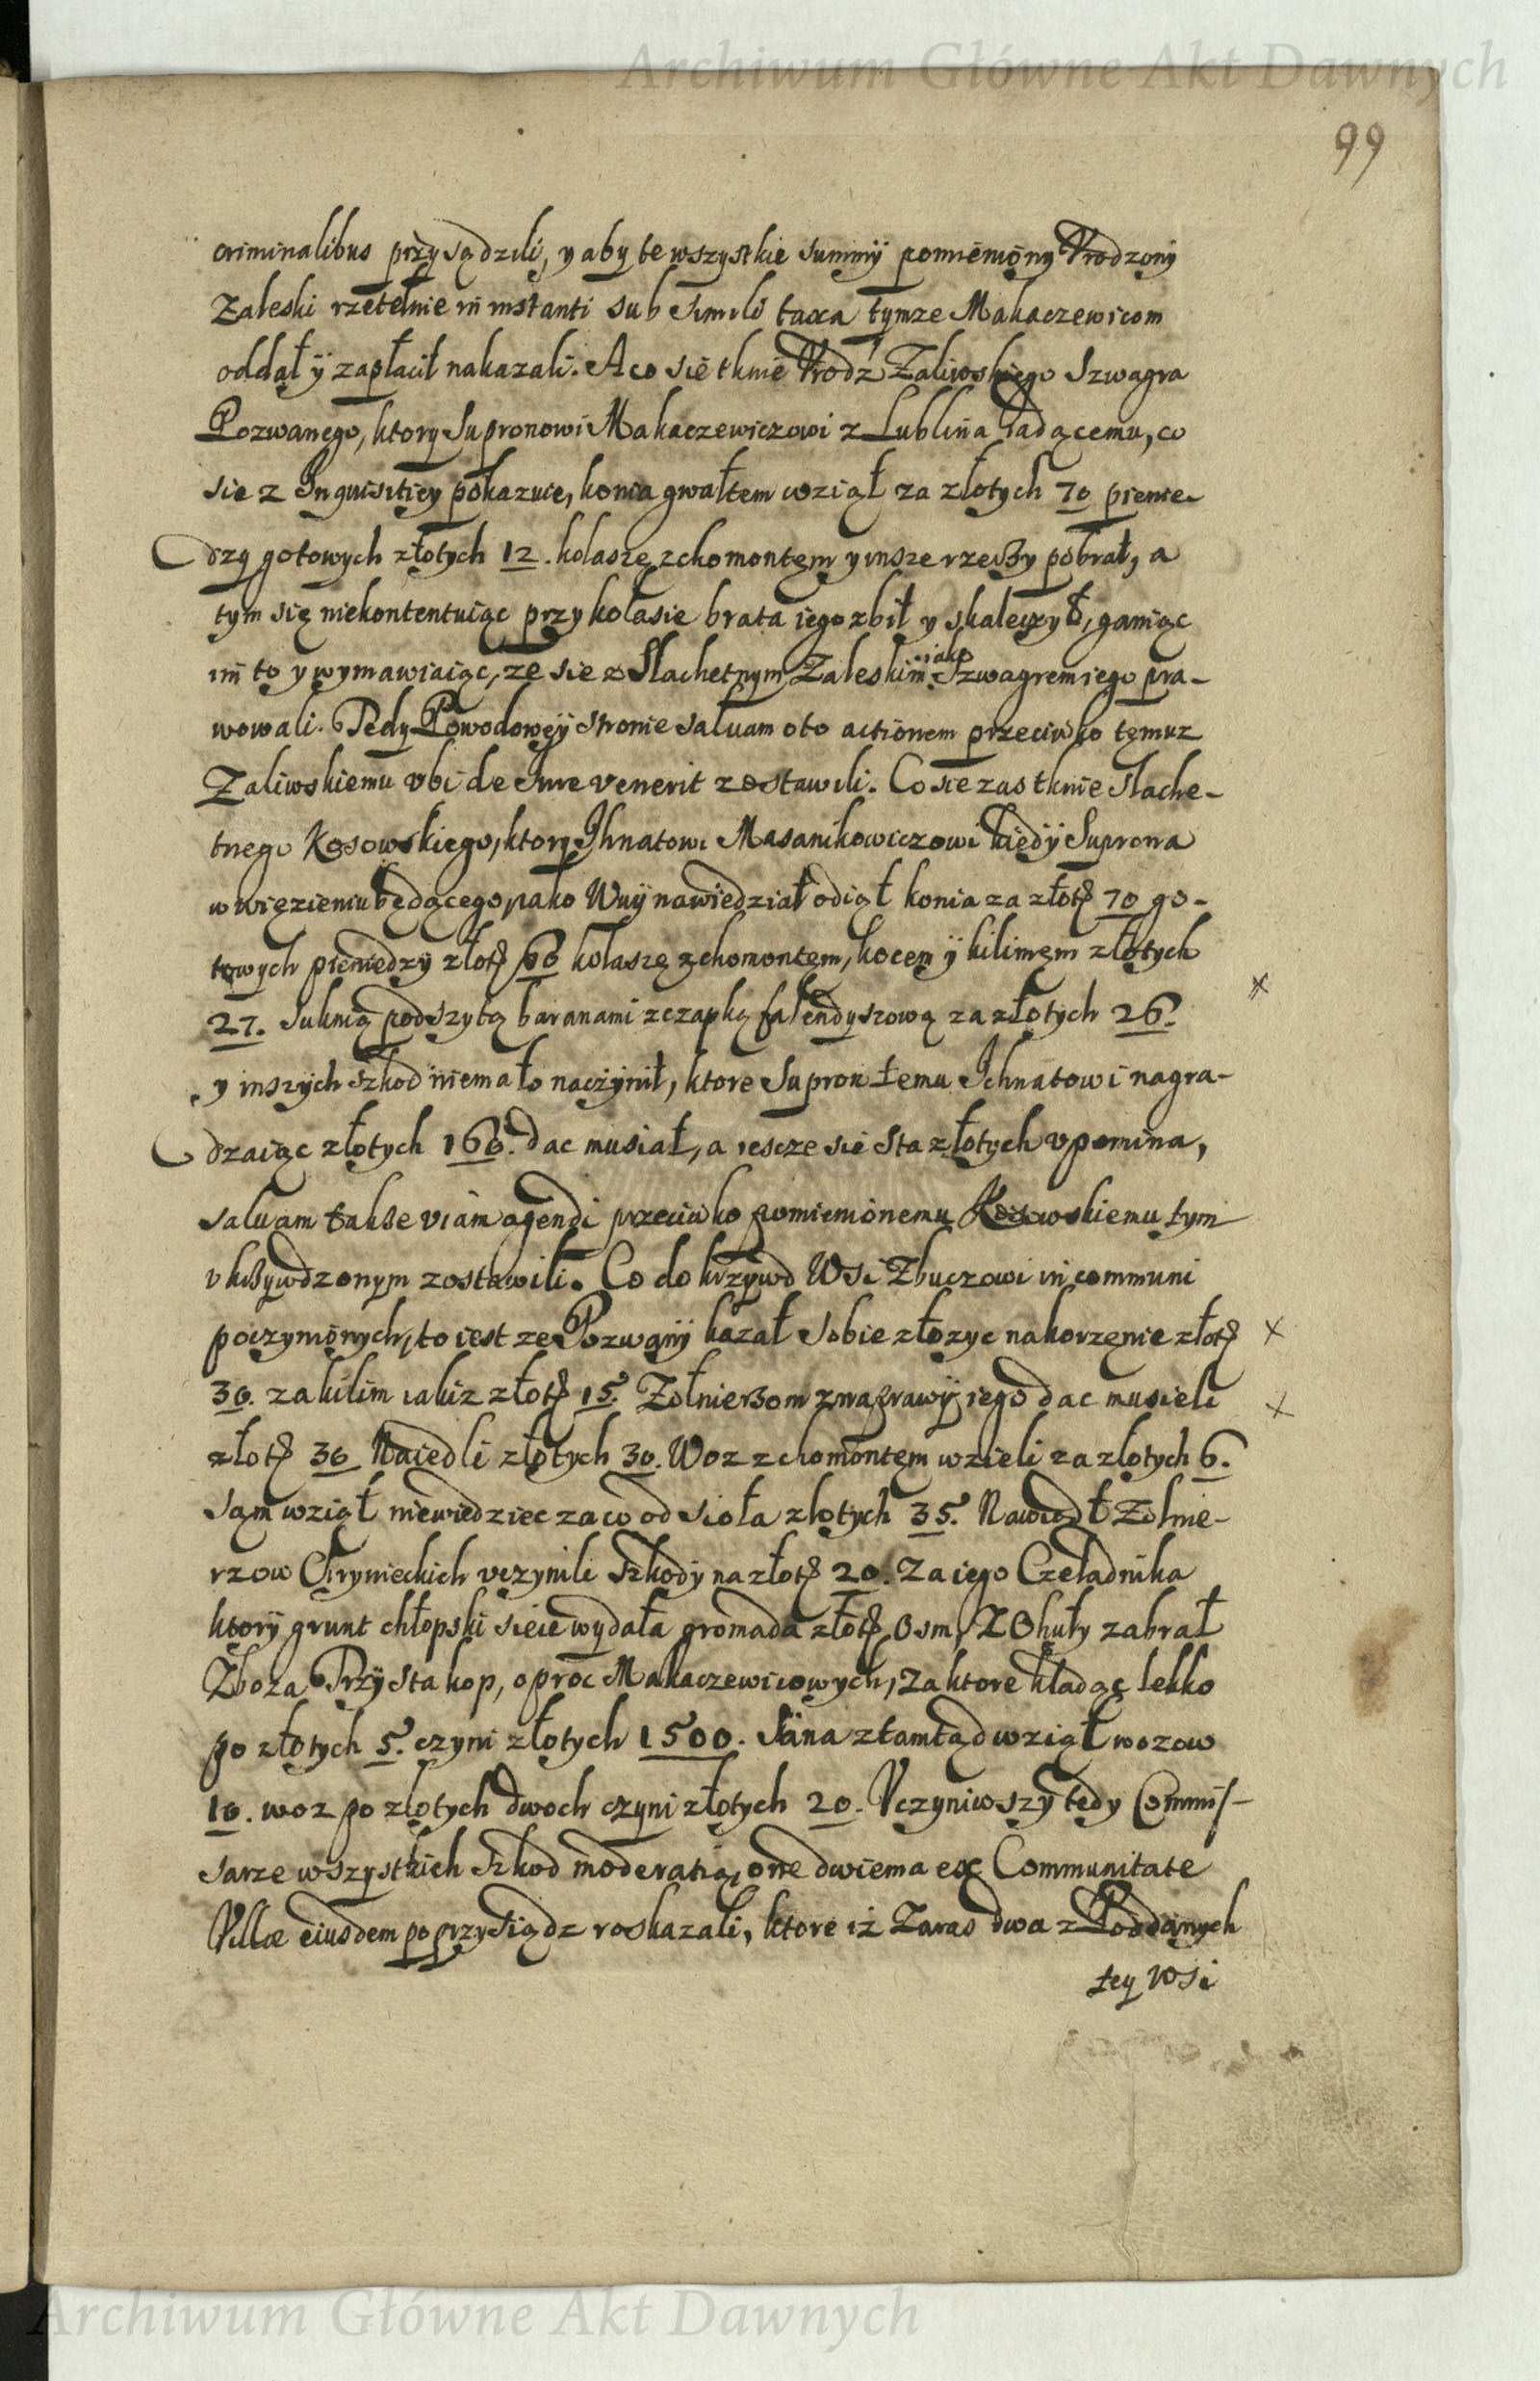 Archiwum Główne Akt Dawnych
99
criminalibus przysądzili, y aby te wszystkie summÿ pomieniony Vrodzony
Zaleski rzetelnie in instanti sub simili taxa tymze Makaczewicom
oddał ÿ zapłacił nakazali. A co sie tknie Vrodz Zaliwoskiego Szwagra
Pozwanego, ktory Supronowi Makaczewiczowi z Lublina iadącemu, co
sie z Inquisitiey pokazuie, konia gwałtem wziął za złotych 70 pienie-
dzy gotowych złotych 12. kolasze z chomontem y insze rzeczy pobrał, a
tym się niekontentuiąc przy kolasie brata iego zbił y skaleczył, ganiąc
im to y wymawiaiąc, ze sie z Slachetnym Zaleskim iako Szwagrem iego pra-
wowali. Tedy Powodowey stronie saluam oto actionem przeciwko temuz
Zaliwskiemu vbi de Iure venerit zostawili. Co sie zas tknie Slache-
tnego Kosowskiego, ktory Ihnatowi Masanikowiczowi kiedÿ Suprona
w więzieniu będącego, iako Wuÿ nawiedział odiął konia za złot 70 go-
towych pieniedzÿ złot kolaszę z chomontem, kocem ÿ kilimem złotych
27. suknią podszytą baranami z czapką falendyszową za złotych 26.
y inszÿch szkod niemało naczÿnił, ktore Supron temu Ichnatowi nagra-
dzaiąc złotych 160. dac musiał, a iescze sie sta złotych vpomina,
saluam także viam agendi przeciwko pomienionemu Kosowskiemu tym
vkrzywdzonym zostawili. Co do krzywd Wsi Zbuczowi in communi
poczynionych, to iest ze Pozwanÿ kazał sobie złozyc na korzenie złot
30. za kilim iakiz złot 15. Zołnierzom z naprawÿ iego dac musieli
złot 30 Naiedli złotych 30. Woz z chomontem wzieli za złotych 6.
Sam wziął niewiedziec za co od sioła złotych 35. Nawiodł Zołnie-
rzow Chrynieckich vczynili szkodÿ na złot 20. Za iego Czeladnika
ktorÿ grunt chłopski sieie wydała gromada złot Osm, Z Ohuły zabrał
Zboza Trzÿsta kop, oproc Makaczewicowych, za ktore kładąc lekko
po złotych 5. czyni złotych 1500. Siana ztamtąd wziął wozow
10. woz po złotych dwoch czyni złotych 20. Vczyniwszÿ tedy Commis-
sarze wszystkich szkod moderatią, one dwiema ex Communitate
Villæ eiusdem poprzysiądz roskazali, ktore iż zaras dwa z Poddanych
tey Wsi
Archiwum Główne Akt Dawnych